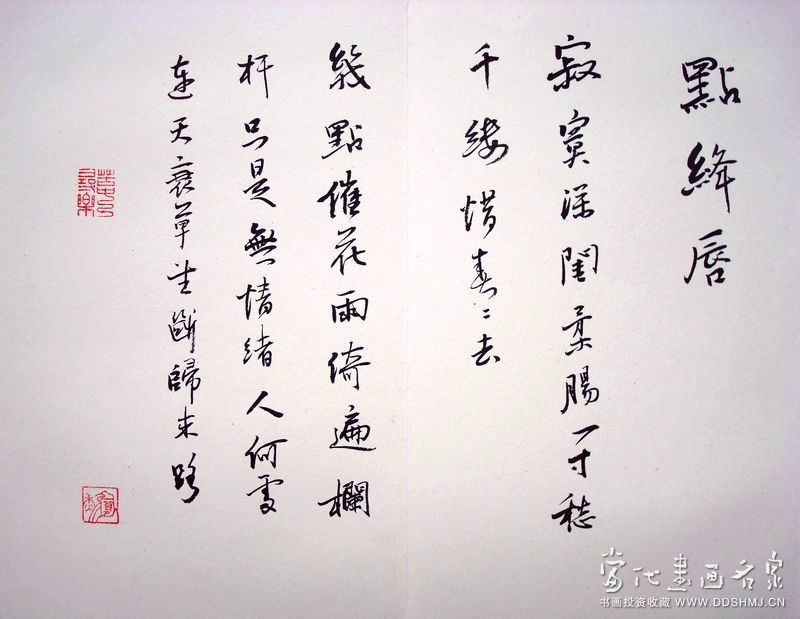 點絳唇
寂寞深閨柔腸一寸愁
千縷惜春〻去
幾點催花雨倚遍欄
杆只是無情緒人何處
連天衰草望斷歸來路
當代書画名家
书画投资收藏 WWW.DDSHMJ.CN